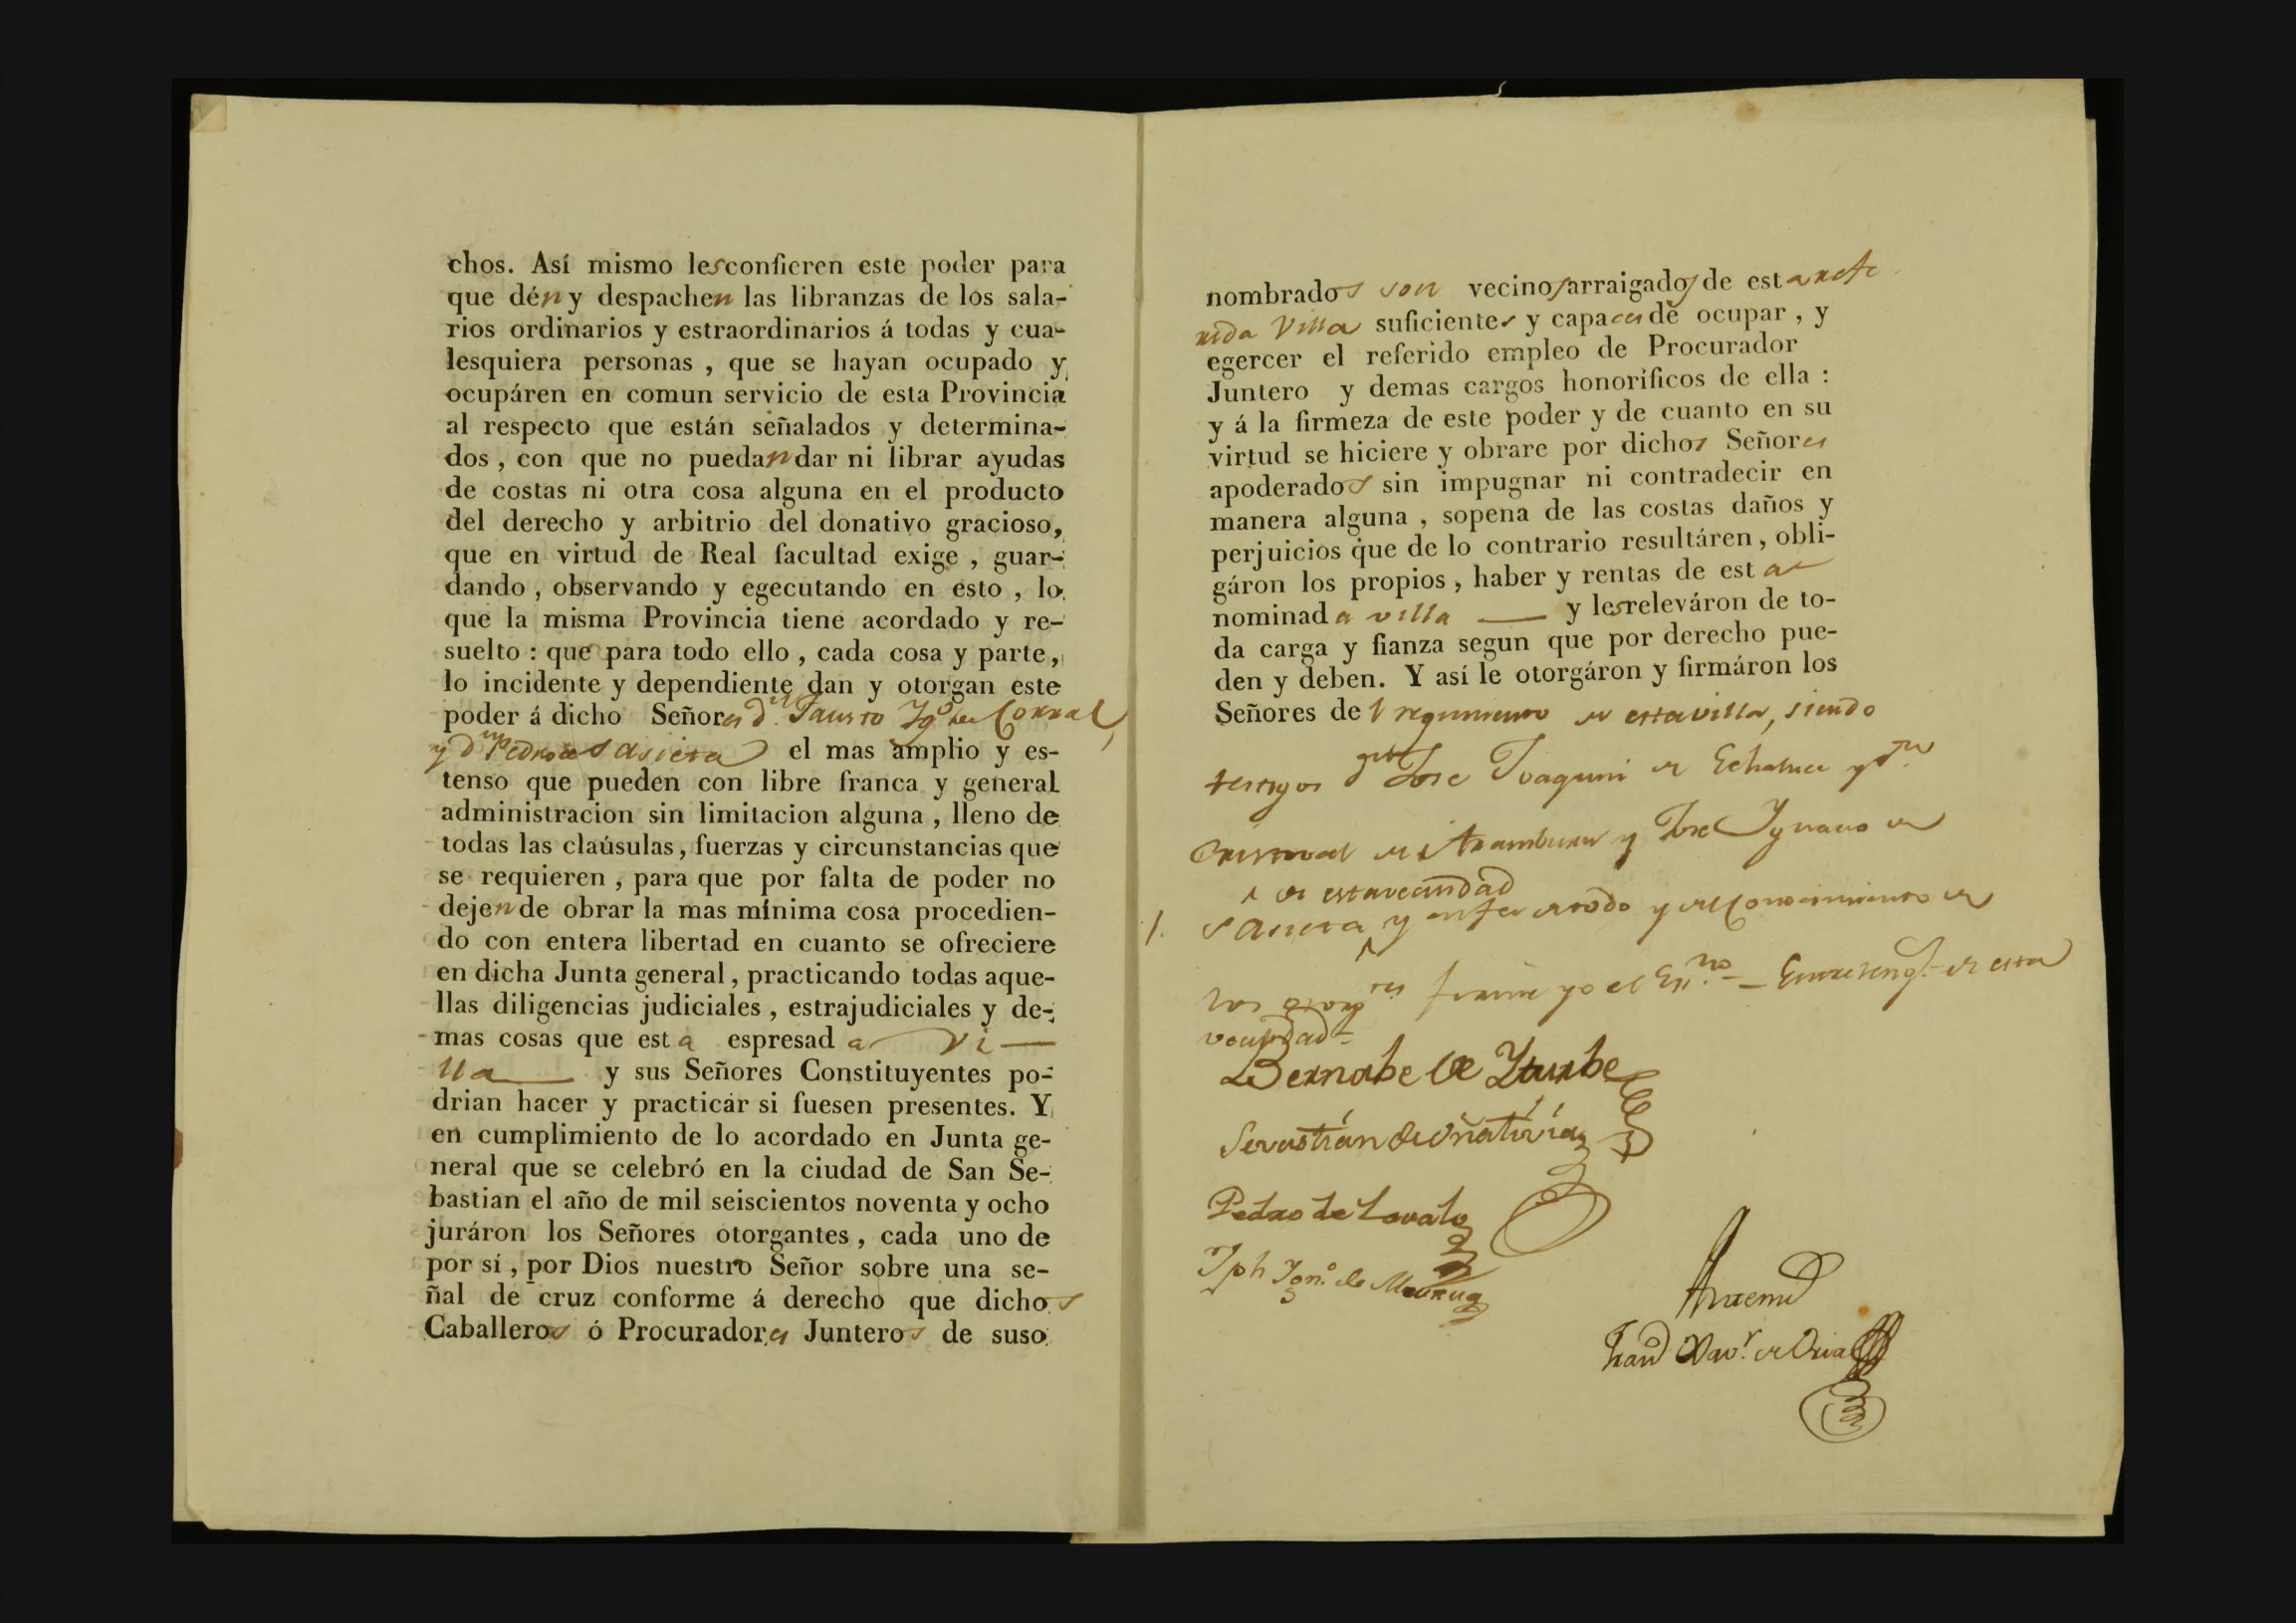 chos. Así mismo les confieren este poder para
que dén y despachen las libranzas de los sala-
rios ordinarios y estraordinarios á todas y cua-
lesquiera personas , que se hayan ocupado y
ocupáren en comun servicio de esta Provincia
al respecto que están señalados y determina-
dos , con que no puedan dar ni librar ayudas
de costas ni otra cosa alguna en el producto
del derecho y arbitrio del donativo gracioso,
que en virtud de Real facultad exige , guar-
dando , observando y egecutando en esto , lo
que la misma Provincia tiene acordado y re-
suelto : que para todo ello , cada cosa y parte,
lo incidente y dependiente dan y otorgan este
poder á dicho Señores dn. Fausto Ygo. de Corral,
y dn Pedro de Sasieta el mas amplio y es-
tenso que pueden con libre franca y general
administracion sin limitacion alguna , lleno de
todas las claúsulas, fuerzas y circunstancias que
se requieren , para que por falta de poder no
dejen de obrar la mas mínima cosa procedien-
do con entera libertad en cuanto se ofreciere
en dicha Junta general, practicando todas aque-
llas diligencias judiciales , estrajudiciales y de-
mas cosas que esta espresada Vi-
lla y sus Señores Constituyentes po-
drian hacer y practicar si fuesen presentes. Y
en cumplimiento de lo acordado en Junta ge-
neral que se celebró en la ciudad de San Se-
bastian el año de mil seiscientos noventa y ocho
juráron los Señores otorgantes , cada uno de
por sí , por Dios nuestro Señor sobre una se-
ñal de cruz conforme á derecho que dichos
Caballeros ó Procuradores Junteros de suso
nombrados son vecinos arraigados de esta refe
rida Villa suficientes y capaces de ocupar , y
egercer el referido empleo de Procurador
Juntero y demas cargos honoríficos de ella :
y á la firmeza de este poder y de cuanto en su
virtud se hiciere y obrare por dichos Señores
apoderados sin impugnar ni contradecir en
manera alguna , sopena de las costas daños y
perjuicios que de lo contrario resultáren, obli-
gáron los propios , haber y rentas de esta
nominada villa — y les releváron de to-
da carga y fianza segun que por derecho pue-
den y deben. Y así le otorgáron y firmáron los
Señores del regimiento de esta villa, siendo
testigos José Joaquin de y
Cristoval de Aramburu y José Ygnacio de
de esta vecindad
Sasieta y en fee de todo y del conocimiento de
los otorgtes firmé yo el Essno — Entrereng. de esta
vecindad=
Bernabe de Yturbe
Sevastián de Oñativia
Pedro de
Jph Ygno. de
Antemi
Xavr. de Oria